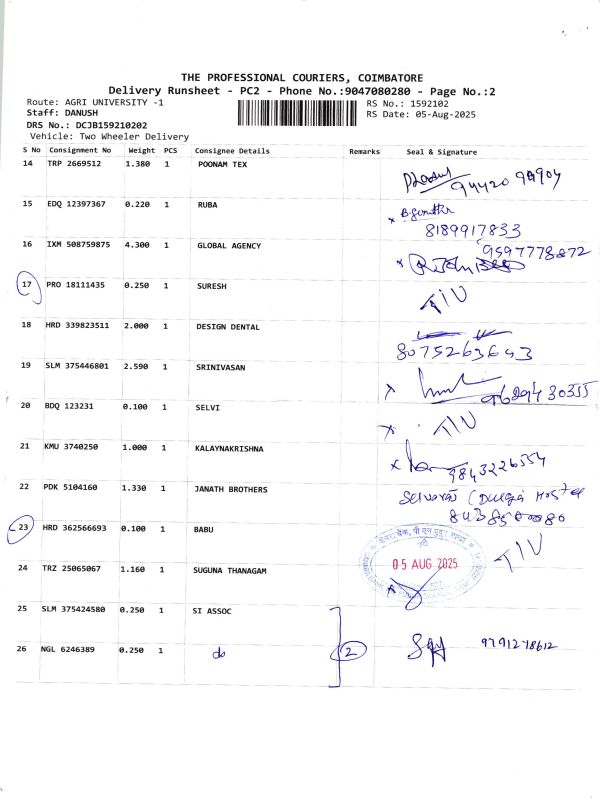 THE PROFESSIONAL COURIERS, COIMBATORE
Delivery Runsheet - PC2 - Phone No.:9047080280 - Page No.:2
Route: AGRI UNIVERSITY -1 RS No.: 1592102
Staff: DANUSH RS Date: 05-Aug-2025
DRS No.: DCJB159210202
Vehicle: Two Wheeler Delivery
S No Consignment No Weight PCS Consignee Details Remarks Seal & Signature
14 TRP 2669512 1.380 1 POONAM TEX
94420 99904
15 EDQ 12397367 0.220 1 RUBA
8189917833
16 IXM 508759875 4.300 1 GLOBAL AGENCY 9597778872
17 PRO 18111435 0.250 1 SURESH TIV
18 HRD 339823511 2.000 1 DESIGN DENTAL
8075263643
19 SLM 375446801 2.590 1 SRINIVASAN
9689430355
20 BDQ 123231 0.100 1 SELVI TIV
21 KMU 3740250 1.000 1 KALAYNAKRISHNA
9843226554
22 PDK 5104160 1.330 1 JANATH BROTHERS Selvaraj (Durga Hostel
8438500080
23 HRD 362566693 0.100 1 BABU TIV
24 TRZ 25065067 1.160 1 SUGUNA THANAGAM 05 AUG 2025
25 SLM 375424580 0.250 1 SI ASSOC
26 NGL 6246389 0.250 1 do 2 9791278612